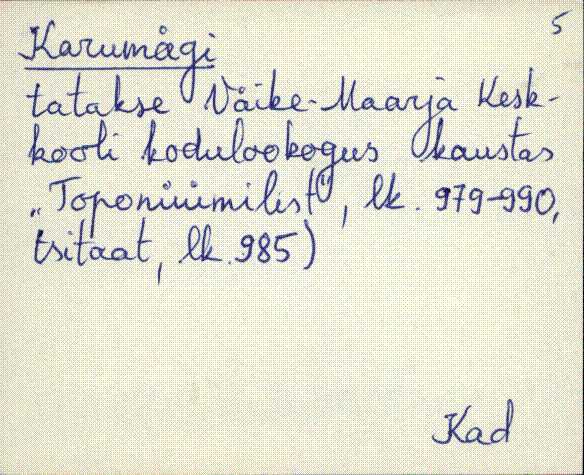 5
Karumägi
tatakse Väike-Maarja Kesk-
kooli kodulookogus kaustas
„Toponüümilist“, lk. 979-990,
tsitaat, lk. 985)
Kad